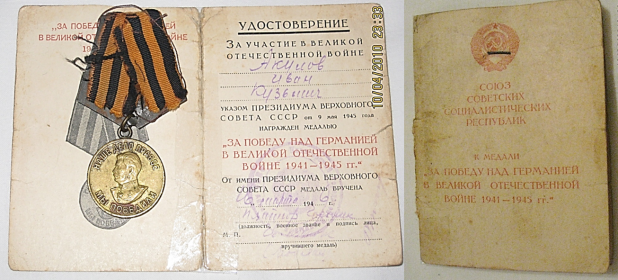 „ЗА ПОБЕДУ НАД ГЕРМАНИЕЙ
В ВЕЛИКОЙ ОТЕЧЕСТВЕННОЙ ВОЙНЕ
НАШЕ ДЕЛО ПРАВОЕ
МЫ ПОБЕДИЛИ
УДОСТОВЕРЕНИЕ
ЗА УЧАСТИЕ В ВЕЛИКОЙ
ОТЕЧЕСТВЕННОЙ ВОЙНЕ
Акулов
Иван
Кузьмич
УКАЗОМ ПРЕЗИДИУМА ВЕРХОВНОГО
СОВЕТА СССР от 9 мая 1945 года
НАГРАЖДЕН МЕДАЛЬЮ
"ЗА ПОБЕДУ НАД ГЕРМАНИЕЙ
В ВЕЛИКОЙ ОТЕЧЕСТВЕННОЙ
ВОЙНЕ 1941—1945 гг."
От имени ПРЕЗИДИУМА ВЕРХОВНОГО
СОВЕТА СССР МЕДАЛЬ ВРУЧЕНА
194 г.
(должность, военное звание и подпись лица,
вручившего медаль)
10/04/2010 23:33
СОЮЗ
СОВЕТСКИХ
СОЦИАЛИСТИЧЕСКИХ
РЕСПУБЛИК
К МЕДАЛИ
„ЗА ПОБЕДУ НАД ГЕРМАНИЕЙ
В ВЕЛИКОЙ ОТЕЧЕСТВЕННОЙ
ВОЙНЕ 1941—1945 гг."